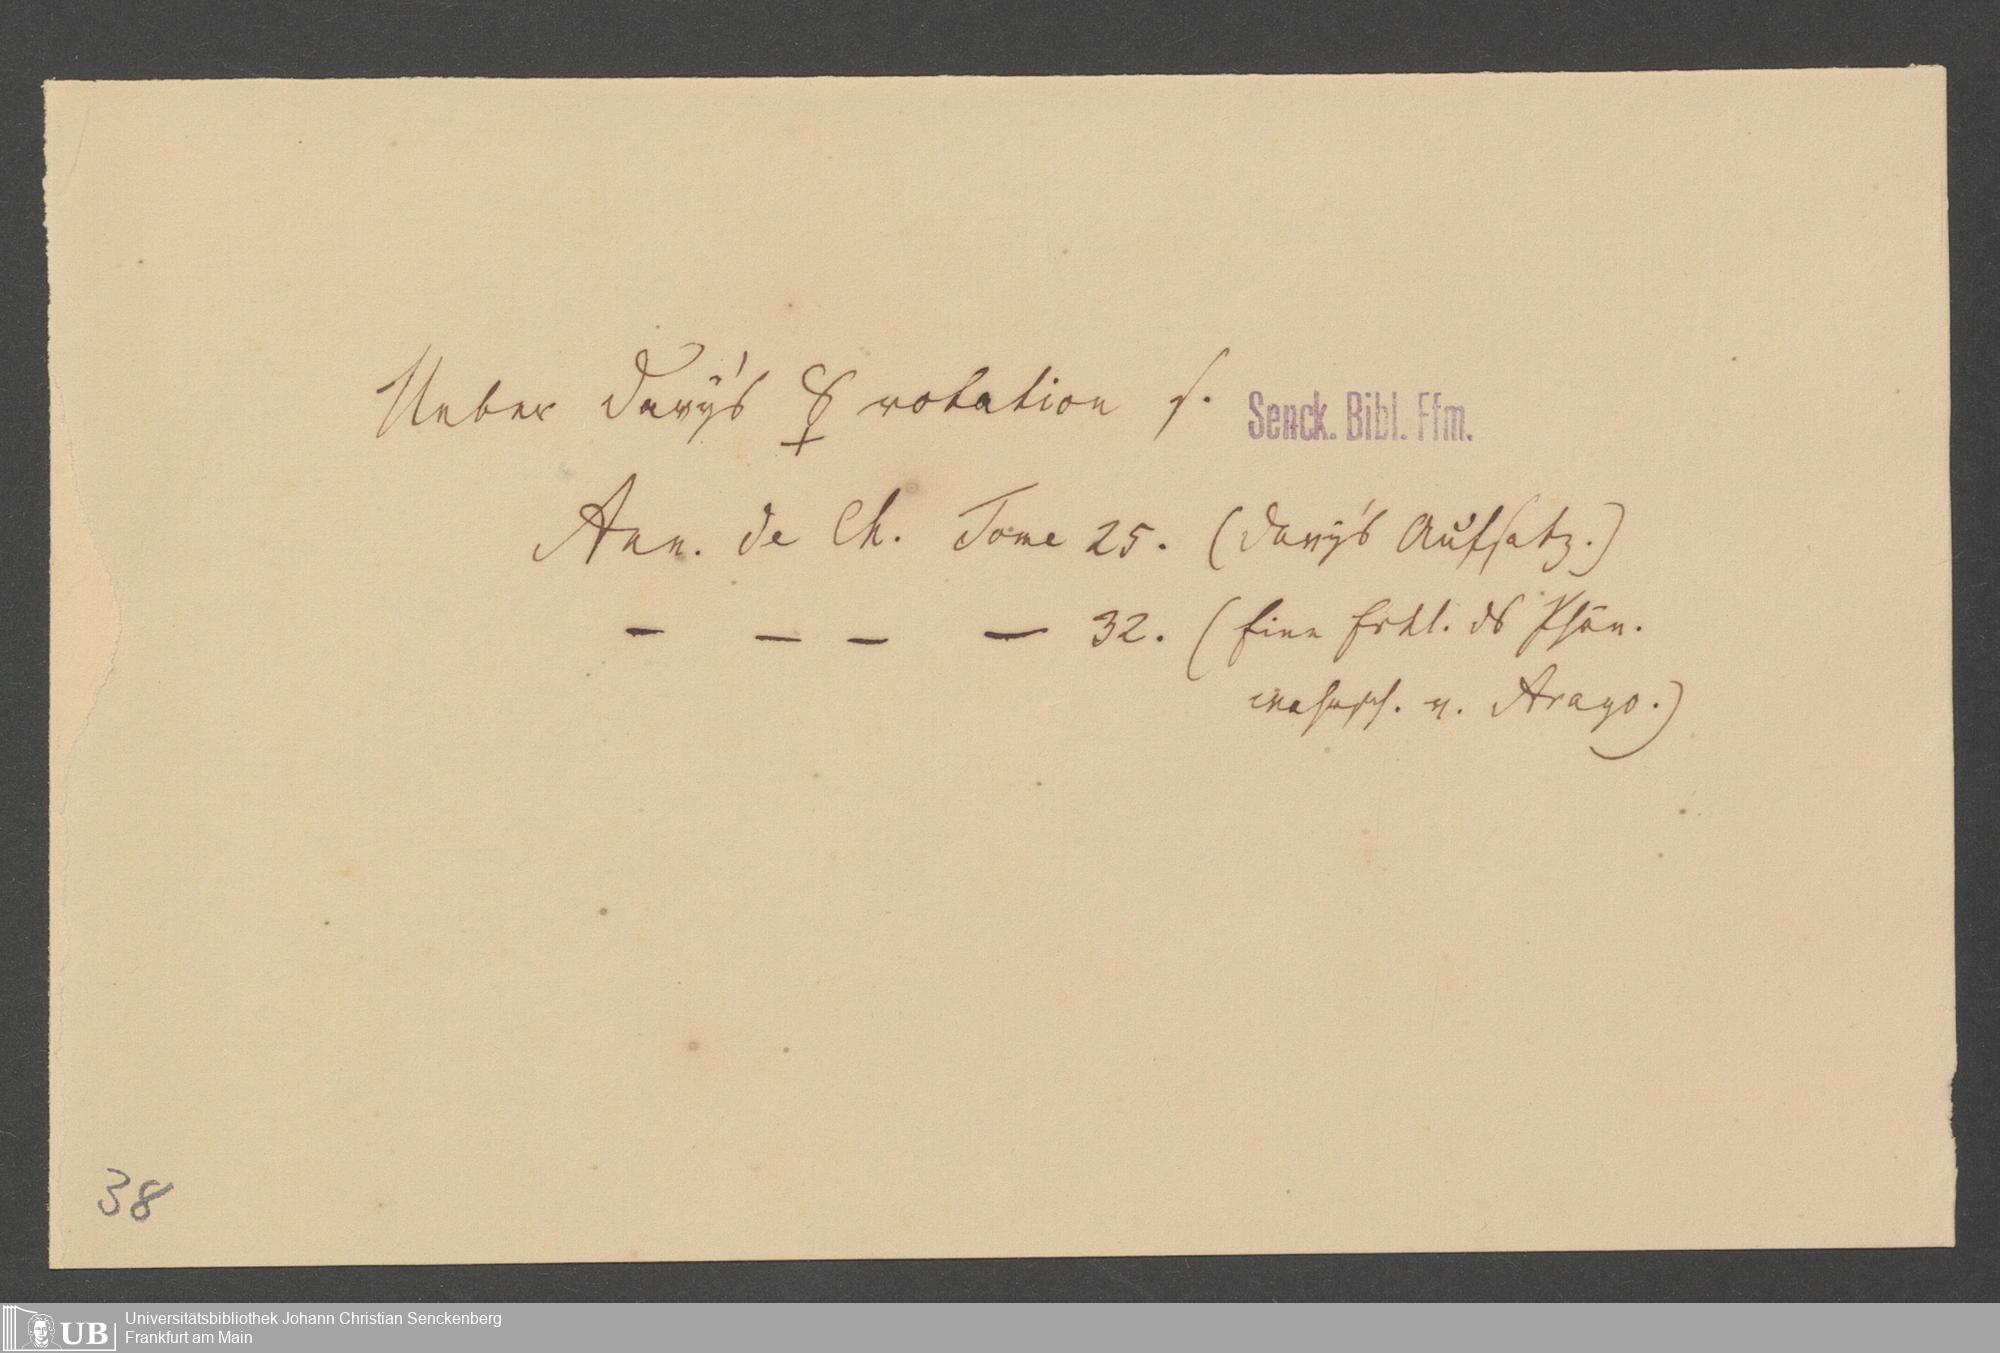 Ueber Davy's ☿ rotation s.
Senck. Bibl. Ffm.
Ann. de Ch. Tome 25. (Davy's Aufsatz.)
— — — — 32. (Eine Erkl. ds Phän.
wahrsch. v. Arago.)
38
UB
Universitätsbibliothek Johann Christian Senckenberg
Frankfurt am Main